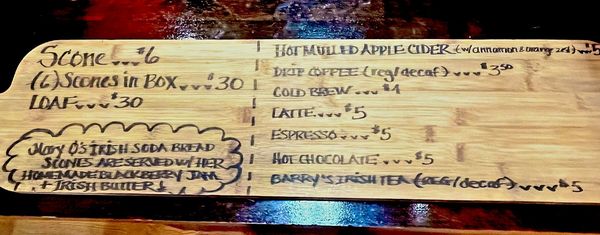 SCONE...$6
(6) SCONES in BOX...$30
LOAF...$30
MARY O'S IRISH SODA BREAD
SCONES ARE SERVED W/ HER
HOMEMADE BLACKBERRY JAM
+ IRISH BUTTER!
HOT MULLED APPLE CIDER (w/cinnamon & orange zest)...$5
DRIP COFFEE (reg/decaf)...$3.50
COLD BREW...$4
LATTE...$5
ESPRESSO...$5
HOT CHOCOLATE...$5
BARRY'S IRISH TEA (REG/decaf)...$5